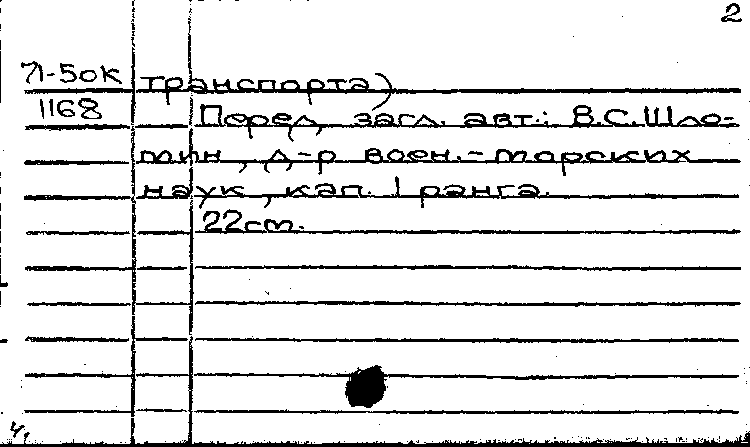 2
71-50к транспорта)
1168 Перед загл. авт.: В.С.Шло-
мин, д-р воен.-морских
наук, кап. 1 ранга.
22cm.